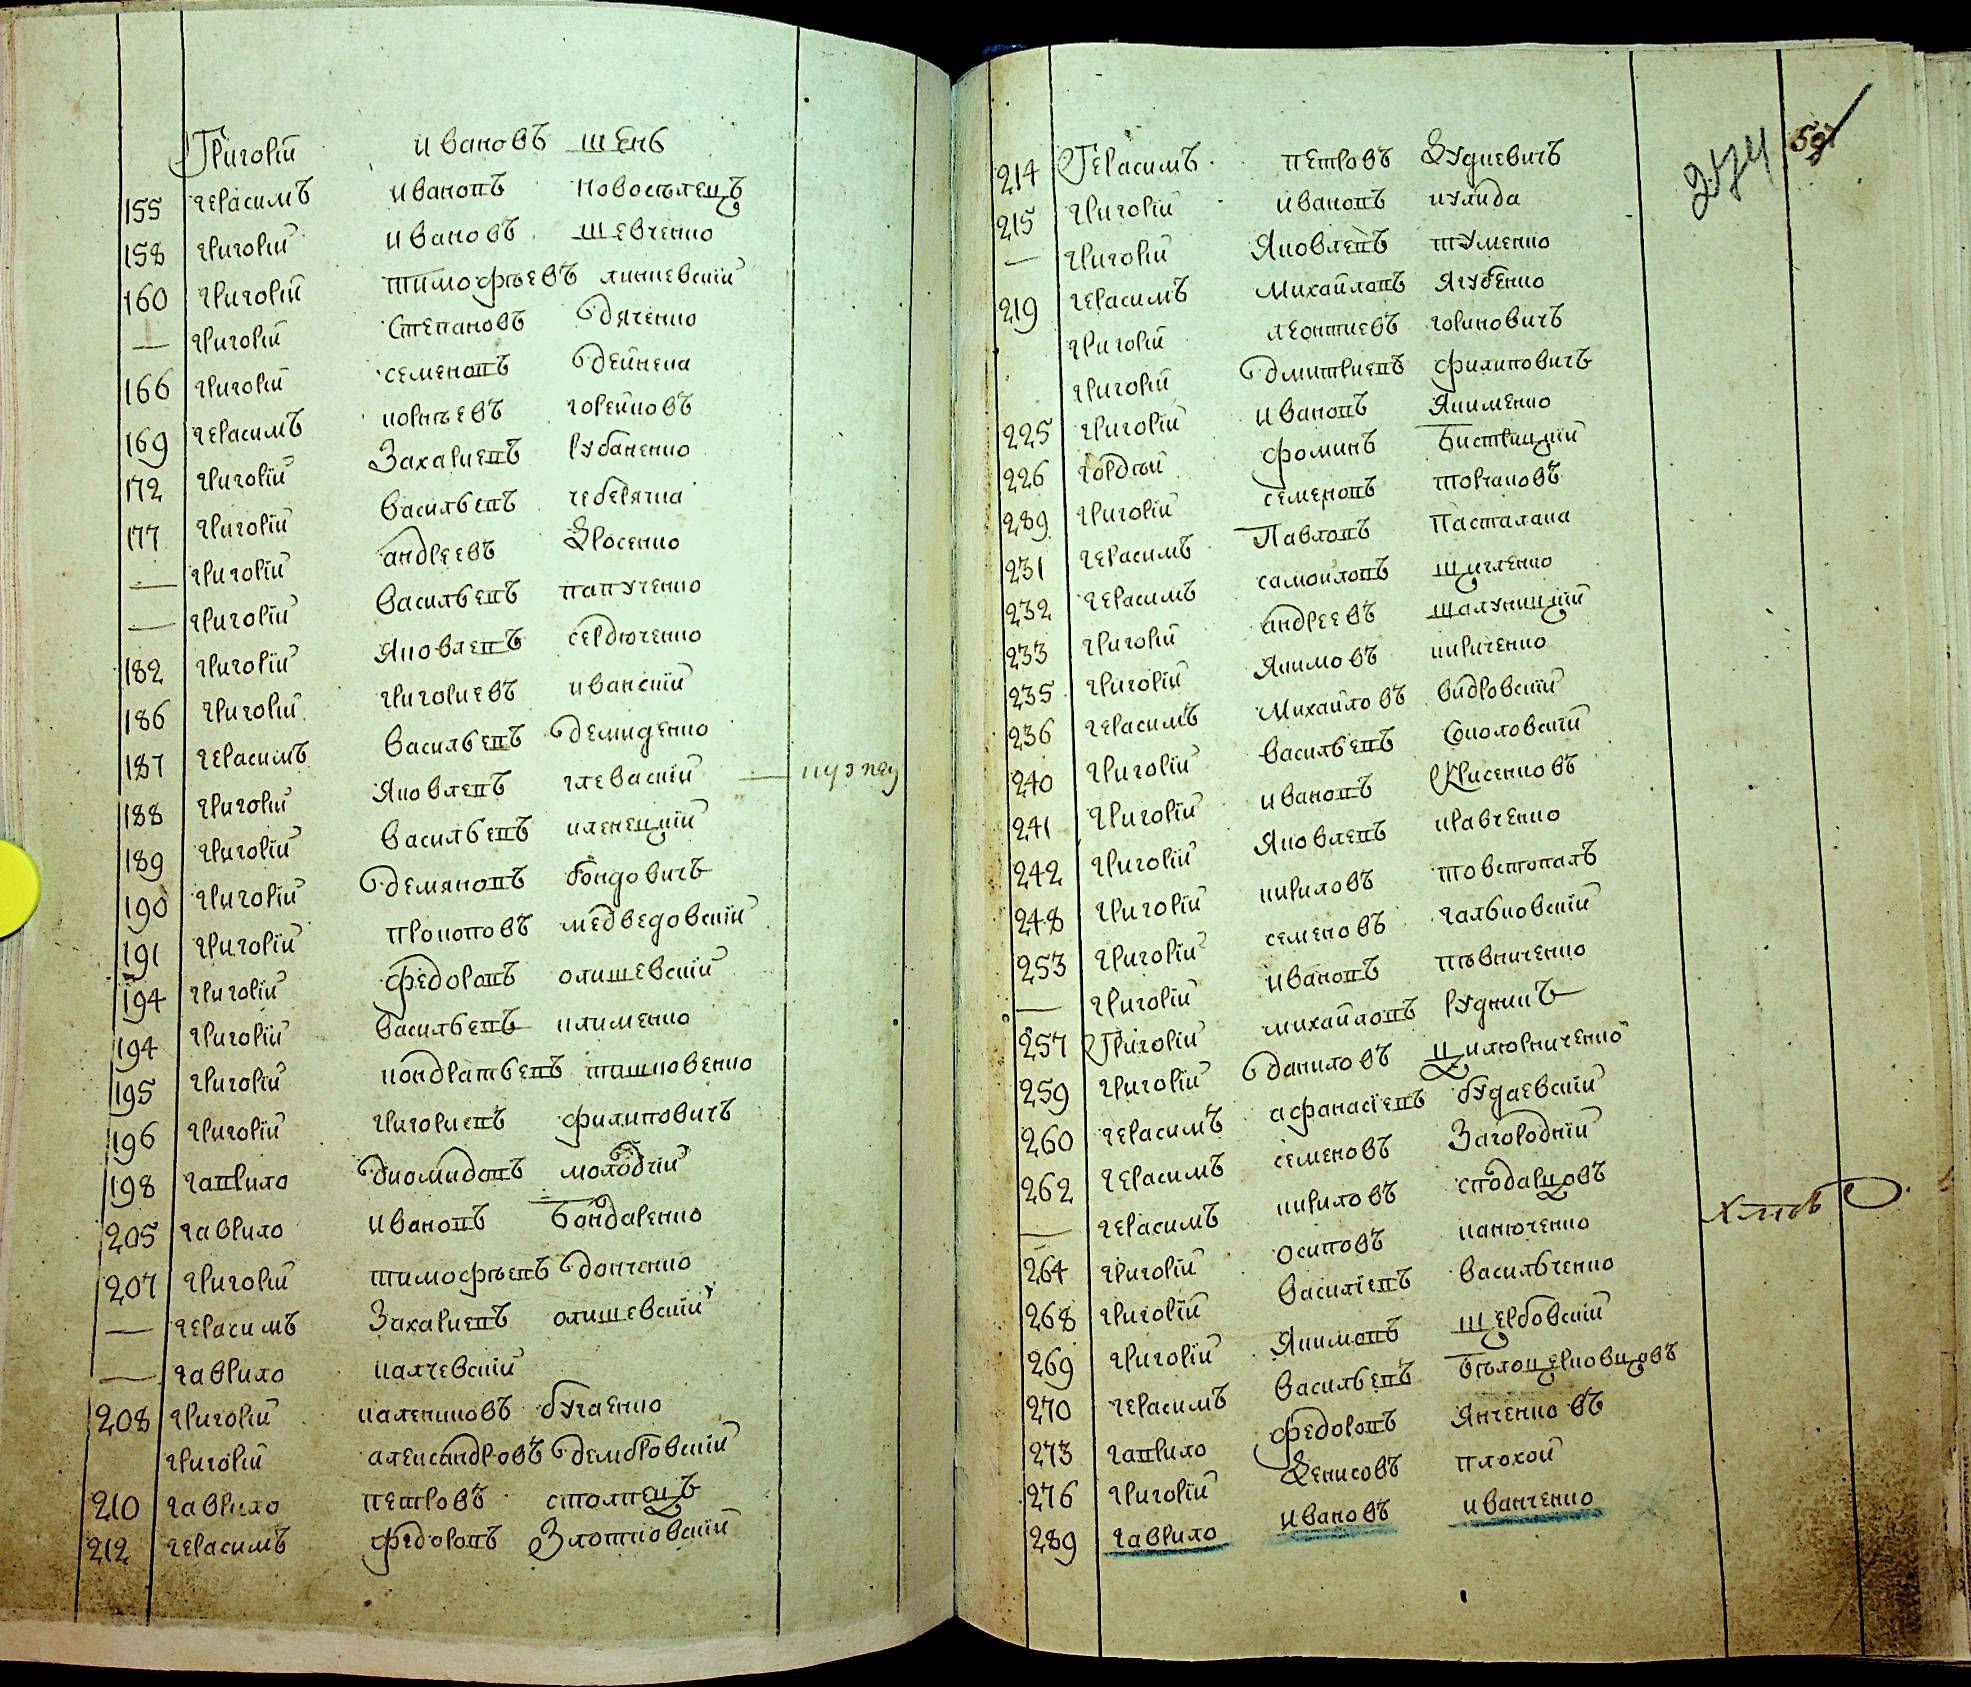 Григорій Ивановъ Шень
155 герасимъ ивановъ новоселецъ
158 григорій ивановъ шевченко
160 григорій тимофѣевъ линневскій
— григорій Степановъ дяченко
166 григорій семеновъ дейнека
169 герасимъ корнѣевъ горейковъ
172 григорій Захариевъ рубаненко
177 григорій васильевъ чеберячка
— григорій андреевъ Яросенко
— григорій васильевъ папученко
182 григорій Яковлевъ сердюченко
186 григорій григориевъ иванскій
187 герасимъ васильевъ демиденко
188 григорій Яковлевъ глеваскій
189 григорій васильевъ кленецкій
190 григорій демяновъ бондовичъ
191 григорій прокоповъ медведовскій
194 григорій федоровъ олишевскій
194 григорій васильевъ клименко
195 григорій кондратьевъ тишковенко
196 григорій григориевъ филиповичъ
198 гаврило диомидовъ молодчій
205 гаврило ивановъ бондаренко
207 григорій тимофѣевъ донченко
— герасимъ Захариевъ олишевскій
— гаврило калчевскій
208 григорій калениковъ бугаенко
григорій александровъ дембровскій
210 гаврило петровъ столпецъ
212 герасимъ федоровъ Злотковскій
274
59
214 Герасимъ петровъ Дудневичъ
215 григорій ивановъ кулида
— григорій Яковлевъ тумenko
219 герасимъ михайловъ Ягубенко
григорій леонтиевъ горкновичъ
григорій дмитриевъ филиповичъ
225 григорій ивановъ Якименко
226 гордѣй фоминъ бистрицкій
289 григорій семеновъ торчановъ
231 герасимъ Павловъ Пасталака
232 герасимъ самойловъ щигленко
233 григорій андреевъ шалуницкій
235 григорій Якимовъ кириченко
236 герасимъ михайловъ видровскій
240 григорій васильевъ Соколовскій
241 григорій ивановъ Фисенковъ
242 григорій Яковлевъ кравченко
248 григорій кириловъ товстопалъ
253 григорій семеновъ гальковскій
— григорій ивановъ пѣвниченко
257 Григорій михайловъ рудникъ
259 григорій даниловъ цилюрниченко
260 герасимъ афанасіевъ будаевскій
262 герасимъ семеновъ Загородній
— герасимъ кириловъ сподарцовъ
264 григорій осиповъ канюченко
268 григорій василіевъ васильченко
269 григорій Якимовъ щербовскій
270 герасимъ васильевъ бѣлоцерковцовъ
273 гаврило федоровъ Янченковъ
276 григорій Денисовъ плохой
289 гаврило ивановъ иванченко